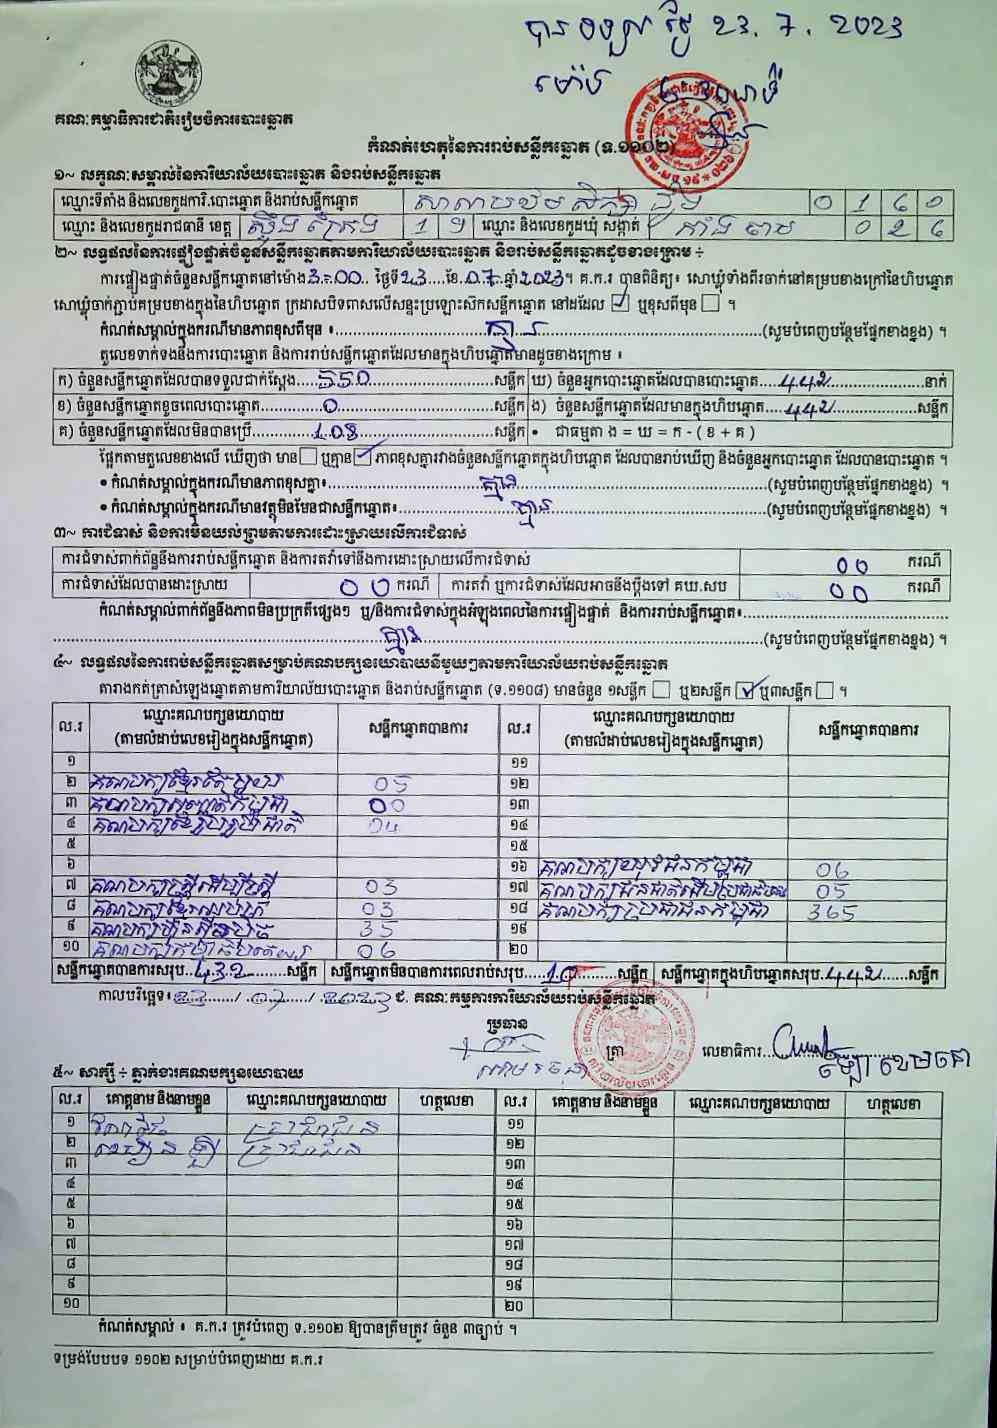 បានទទួល ថ្ងៃ 23. 7. 2023
ម៉ោង
គណៈកម្មាធិការជាតិរៀបចំការបោះឆ្នោត
កំណត់ហេតុនៃការរាប់សន្លឹកឆ្នោត (ទ.១១០២)
១~ លក្ខណៈសម្គាល់នៃការិយាល័យបោះឆ្នោត និងរាប់សន្លឹកឆ្នោត
ឈ្មោះទីតាំង និងលេខកូដការិ.បោះឆ្នោត និងរាប់សន្លឹកឆ្នោត 0 1 6 0
ឈ្មោះ និងលេខកូដរាជធានី ខេត្ត ស្ទឹងត្រែង 1 9 ឈ្មោះ និងលេខកូដឃុំ សង្កាត់ កាំងចាម 0 2 6
២~ លទ្ធផលនៃការផ្ទៀងផ្ទាត់ចំនួនសន្លឹកឆ្នោតតាមការិយាល័យបោះឆ្នោត និងរាប់សន្លឹកឆ្នោតដូចខាងក្រោម ÷
ការផ្ទៀងផ្ទាត់ចំនួនសន្លឹកឆ្នោតនៅម៉ោង 3:00 ថ្ងៃទី 23 ខែ 07 ឆ្នាំ 2023។ គ.ក.រ បានពិនិត្យ៖ សោឃ្លុំទាំងពីរចាក់នៅគម្របខាងក្រៅនៃហិបឆ្នោត
សោឃ្លុំចាក់ភ្ជាប់គម្របខាងក្នុងនៃហិបឆ្នោត ក្រដាសបិទពាសលើសន្ទះប្រឡោះសិកសន្លឹកឆ្នោត នៅដដែល ☑ ឬខុសពីមុន ☐ ។
កំណត់សម្គាល់ក្នុងករណីមានភាពខុសពីមុន ៖ គ្មាន (សូមបំពេញបន្ថែមផ្នែកខាងខ្នង) ។
តួលេខទាក់ទងនឹងការបោះឆ្នោត និងការរាប់សន្លឹកឆ្នោតដែលមានក្នុងហិបឆ្នោតមានដូចខាងក្រោម ៖
ក) ចំនួនសន្លឹកឆ្នោតដែលបានទទួលជាក់ស្តែង 550 សន្លឹក ឃ) ចំនួនអ្នកបោះឆ្នោតដែលបានបោះឆ្នោត 442 នាក់
ខ) ចំនួនសន្លឹកឆ្នោតខូចពេលបោះឆ្នោត 0 សន្លឹក ង) ចំនួនសន្លឹកឆ្នោតដែលមានក្នុងហិបឆ្នោត 442 សន្លឹក
គ) ចំនួនសន្លឹកឆ្នោតដែលមិនបានប្រើ 108 សន្លឹក • ជាធម្មតា ង = ឃ = ក - ( ខ + គ )
ផ្អែកតាមតួលេខខាងលើ ឃើញថា មាន ☐ ឬគ្មាន ☑ ភាពខុសគ្នារវាងចំនួនសន្លឹកឆ្នោតក្នុងហិបឆ្នោត ដែលបានរាប់ឃើញ និងចំនួនអ្នកបោះឆ្នោត ដែលបានបោះឆ្នោត ។
• កំណត់សម្គាល់ក្នុងករណីមានភាពខុសគ្នា៖ គ្មាន (សូមបំពេញបន្ថែមផ្នែកខាងខ្នង) ។
• កំណត់សម្គាល់ក្នុងករណីមានវត្ថុមិនមែនជាសន្លឹកឆ្នោត៖ គ្មាន (សូមបំពេញបន្ថែមផ្នែកខាងខ្នង) ។
៣~ ការជំទាស់ និងការមិនយល់ព្រមតាមការដោះស្រាយលើការជំទាស់
ការជំទាស់ពាក់ព័ន្ធនឹងការរាប់សន្លឹកឆ្នោត និងការតវ៉ាទៅនឹងការដោះស្រាយលើការជំទាស់ 00 ករណី
ការជំទាស់ដែលបានដោះស្រាយ 00 ករណី ការតវ៉ា ឬការជំទាស់ដែលអាចនឹងប្តឹងទៅ គឃ.សប 00 ករណី
កំណត់សម្គាល់ពាក់ព័ន្ធនឹងភាពមិនប្រក្រតីផ្សេងៗ ឬ/និងការជំទាស់ក្នុងអំឡុងពេលនៃការផ្ទៀងផ្ទាត់ និងការរាប់សន្លឹកឆ្នោត៖
គ្មាន (សូមបំពេញបន្ថែមផ្នែកខាងខ្នង) ។
៤~ លទ្ធផលនៃការរាប់សន្លឹកឆ្នោតសម្រាប់គណបក្សនយោបាយនីមួយៗតាមការិយាល័យរាប់សន្លឹកឆ្នោត
តារាងកត់ត្រាសំឡេងឆ្នោតតាមការិយាល័យបោះឆ្នោត និងរាប់សន្លឹកឆ្នោត (ទ.១១០៨) មានចំនួន ១សន្លឹក ☐ ឬ២សន្លឹក ☑ ឬ៣សន្លឹក ☐ ។
ល.រ ឈ្មោះគណបក្សនយោបាយ (តាមលំដាប់លេខរៀងក្នុងសន្លឹកឆ្នោត) សន្លឹកឆ្នោតបានការ ល.រ ឈ្មោះគណបក្សនយោបាយ (តាមលំដាប់លេខរៀងក្នុងសន្លឹកឆ្នោត) សន្លឹកឆ្នោតបានការ
១ ១១
២ គណបក្សខ្មែរតែមួយ 05 ១២
៣ គណបក្សសញ្ជាតិកម្ពុជា 00 ១៣
៤ គណបក្សខ្មែររួបរួមជាតិ 04 ១៤
៥ ១៥
៦ ១៦ គណបក្សយុវជនកម្ពុជា 06
៧ គណបក្សស្ត្រីដើម្បីស្ត្រី 03 ១៧ គណបក្សជនជាតិដើមប្រជាធិបតេយ្យ 05
៨ គណបក្សខ្មែរ 03 ១៨ គណបក្សប្រជាជនកម្ពុជា 365
៩ គណបក្សហ្វ៊ុនស៊ិនប៉ិច 35 ១៩
១០ គណបក្ស 06 ២០
សន្លឹកឆ្នោតបានការសរុប 432 សន្លឹក សន្លឹកឆ្នោតមិនបានការពេលរាប់សរុប 10 សន្លឹក សន្លឹកឆ្នោតក្នុងហិបឆ្នោតសរុប 442 សន្លឹក
កាលបរិច្ឆេទ៖ 23 / 07 / 2023 ជ. គណៈកម្មការការិយាល័យរាប់សន្លឹកឆ្នោត
ប្រធាន
ត្រា លេខាធិការ
៥~ សាក្សី ÷ ភ្នាក់ងារគណបក្សនយោបាយ
ល.រ គោត្តនាម និងនាមខ្លួន ឈ្មោះគណបក្សនយោបាយ ហត្ថលេខា ល.រ គោត្តនាម និងនាមខ្លួន ឈ្មោះគណបក្សនយោបាយ ហត្ថលេខា
១ ប្រជាជន ១១
២ ប្រជាជន ១២
៣ ១៣
៤ ១៤
៥ ១៥
៦ ១៦
៧ ១៧
៨ ១៨
៩ ១៩
១០ ២០
កំណត់សម្គាល់ ៖ គ.ក.រ ត្រូវបំពេញ ទ.១១០២ ឱ្យបានត្រឹមត្រូវ ចំនួន ៣ច្បាប់ ។
ទម្រង់បែបបទ ១១០២ សម្រាប់បំពេញដោយ គ.ក.រ